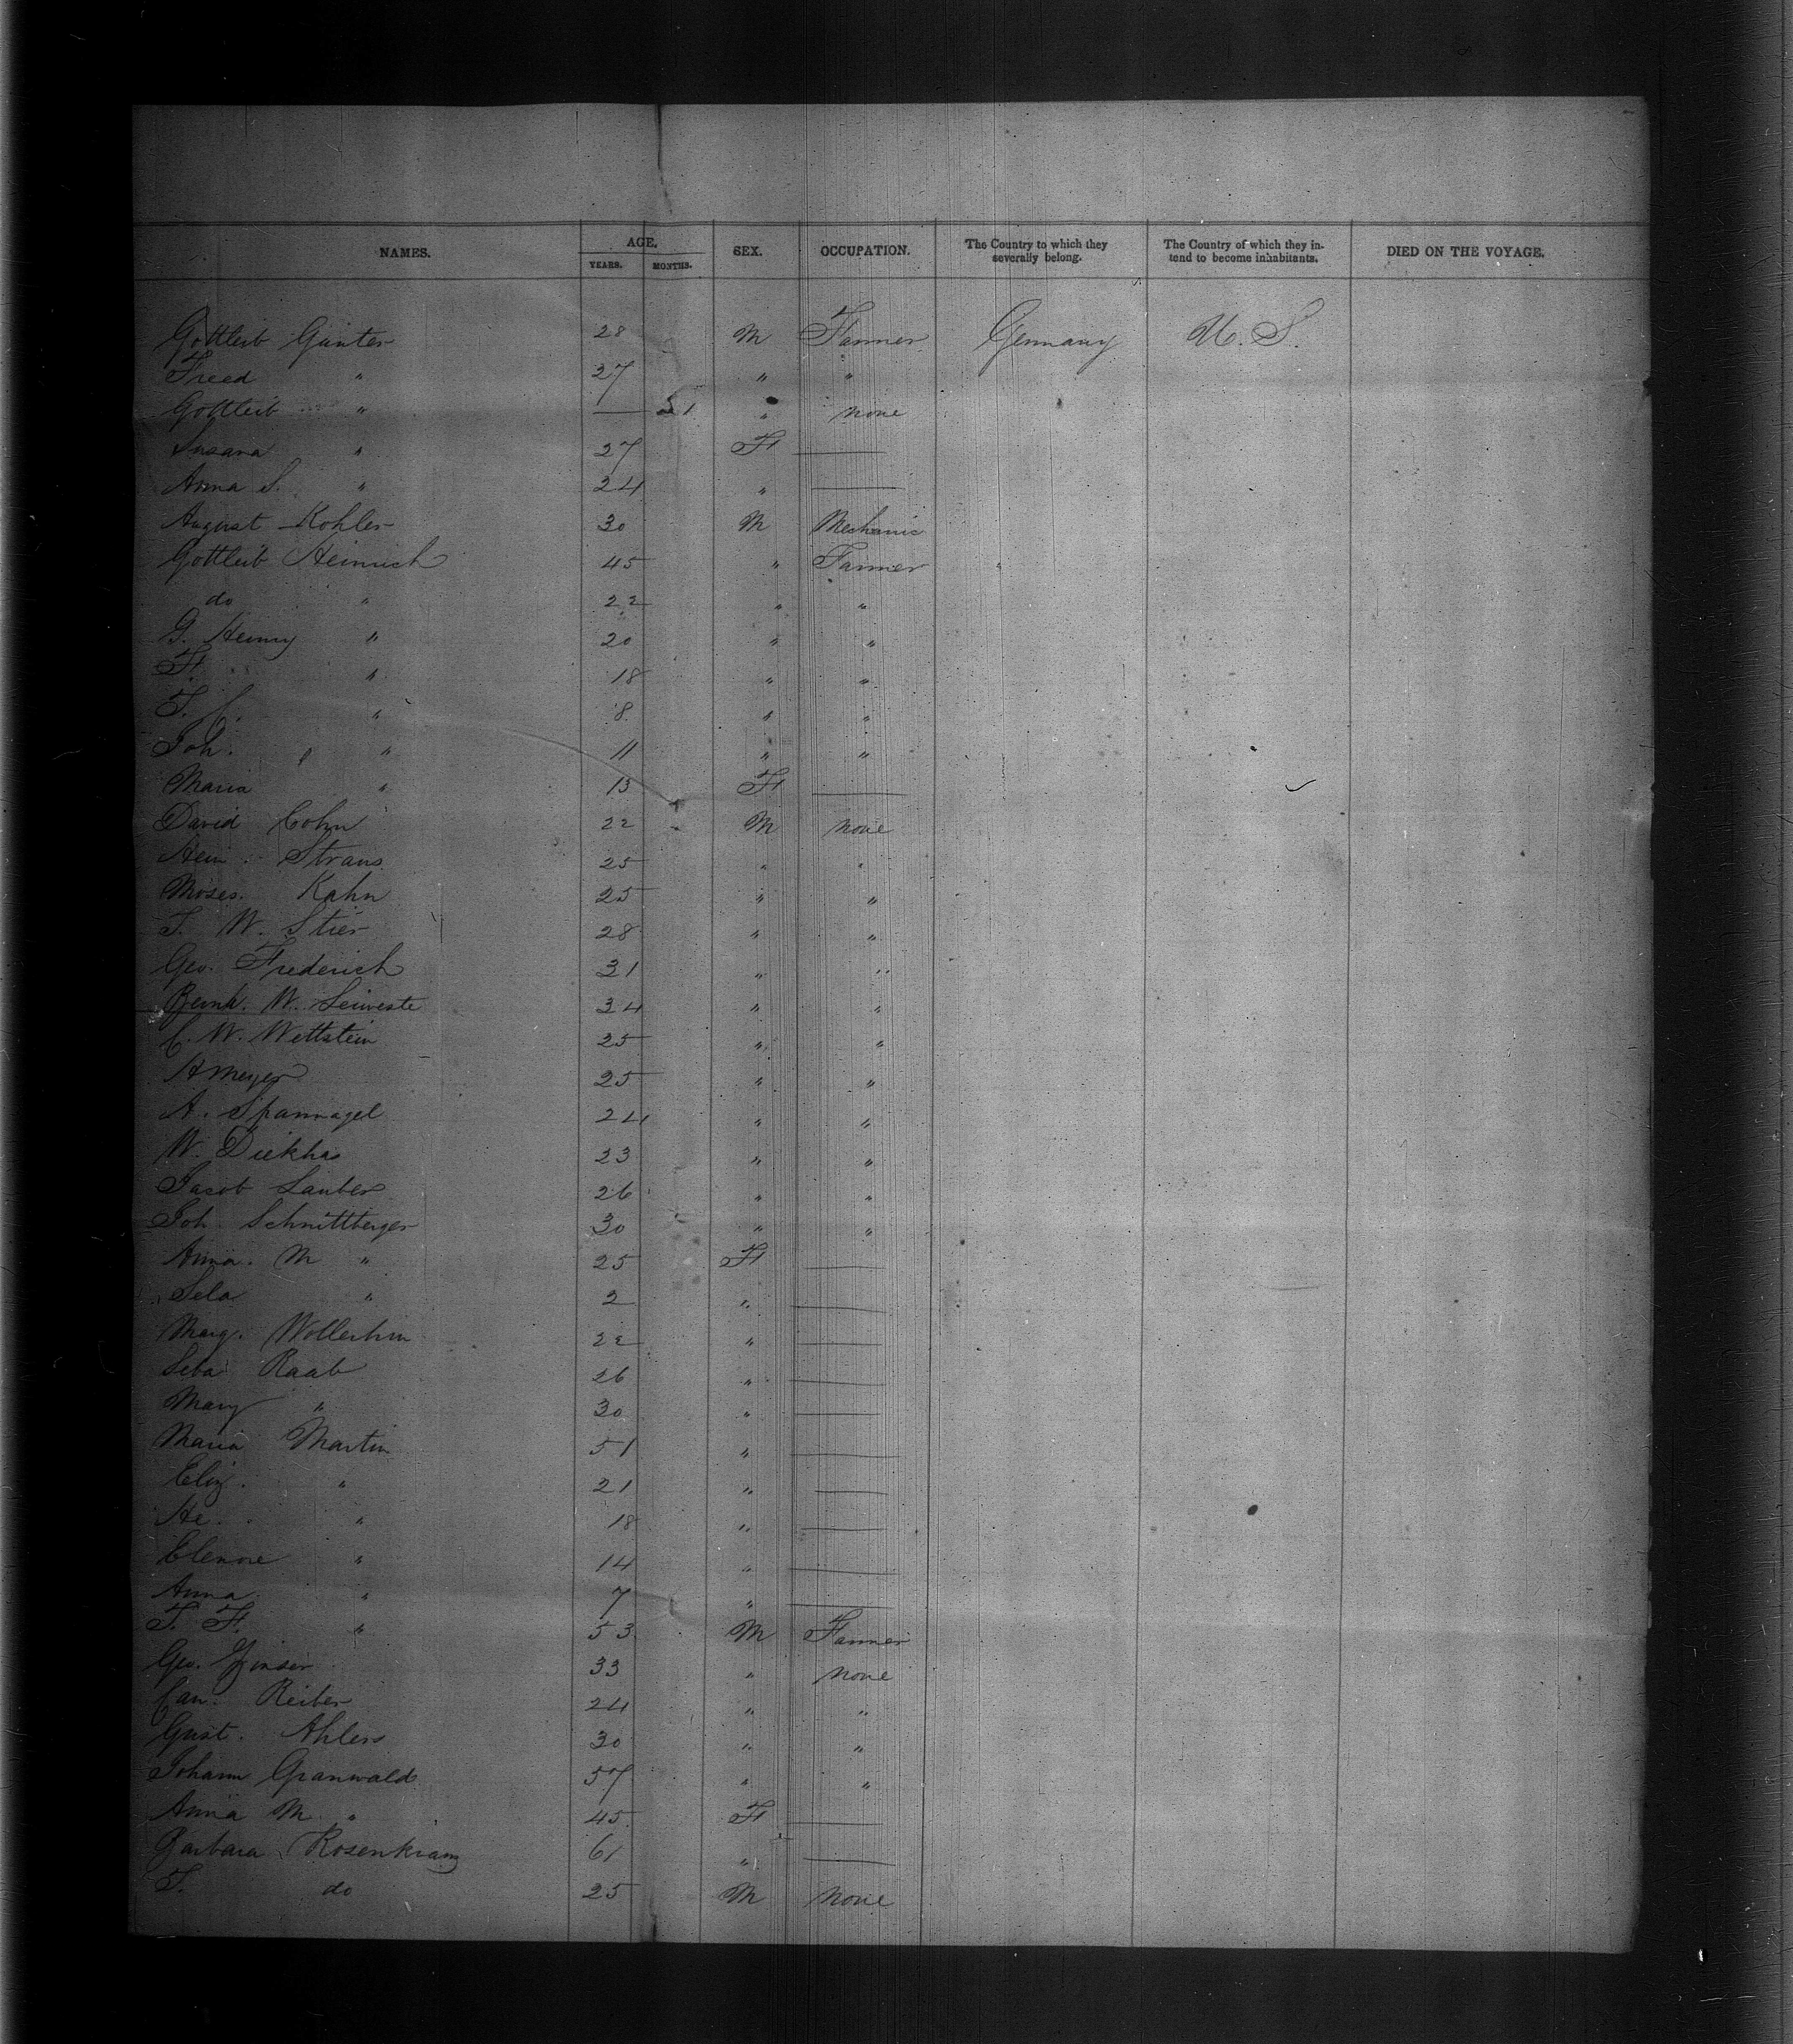 NAMES. AGE. SEX. OCCUPATION. The Country to which they severally belong. The Country of which they intend to become inhabitants. DIED ON THE VOYAGE.
YEARS. MONTHS.
Gottleib Günter 28 M Farmer Germany U. S.
Freed " 27 " "
Gottleib " — " none
Susana " 27 F —
Anna S. " 24 " —
August Kohler 30 M Mechanic
Gottleib Heinrich 45 " Farmer
do " 22 " "
G. Henry " 20 " "
F. " 18 " "
" 8 " "
Joh. " 11 " "
Maria " 13 F —
David Cohn 22 M none
Hein. Straus 25 " "
Moses Kahn 25 " "
J. W. Stier 28 " "
Geo. Frederich 31 " "
Bernh. W. 34 " "
C. W. Wettstein 25 " "
A Meyer 25 " "
A. Spannagel 24 " "
W. Diekhas 23 " "
Jacob Lauber 26 " "
Joh. Schnittberger 30 " "
Anna. M " 25 F —
Sela " 2 " —
Marg. 22 " —
Seba Raab 26 " —
Mary " 30 " —
Maria Martin 51 " —
Eliz. " 21 " —
He. " 18 " —
Elenore " 14 " —
Anna " 7 " —
J. F. " 53 M Farmer
Geo. 33 " none
Can. Reiber 24 " "
Gust. Ahlers 30 " "
Johann Granwald 57 " "
Anna M. " 45 F —
Barbara Rosenkranz 61 " —
J. do 25 M none